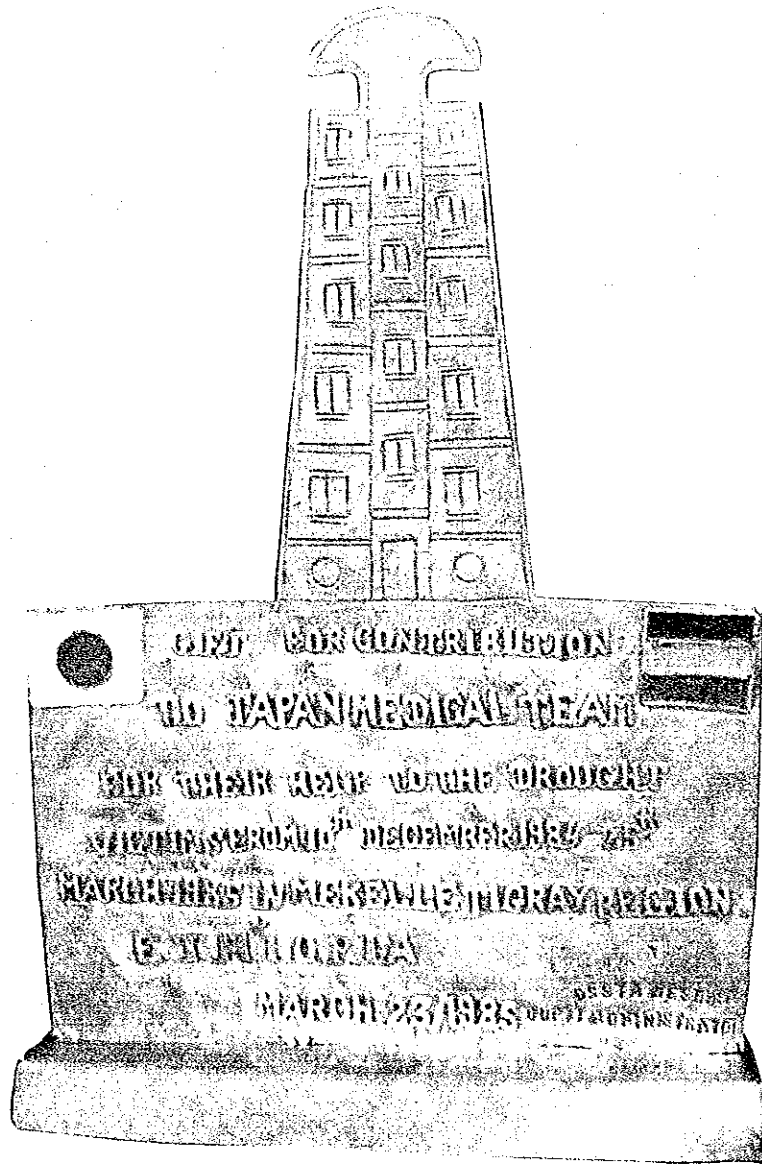 GIFT FOR CONTRIBUTION
TO JAPAN MEDICAL TEAM
FOR THEIR HELP TO THE DROUGHT
VICTIMS FROM 10th DECEMBER 1984 25th
MARCH 1985 IN MEKELLE TIGRAY REGION
ETHIOPIA
MARCH 23/1985